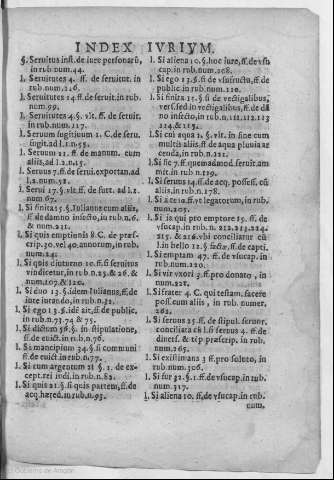 INDEX IVRIVM.
§. Seruitus inst. de iure personarū,
in rub num.44.
l. Seruitutes 4. ff. de seruitut. in
rub.num.216.
l. Seruitutes 14 ff. de seruit. in rub.
num.99.
l. Seruitutes 4.§. vlt. ff. de seruit.
in rub.num.117.
l. Seruum fugitiuum 1. C. de seru.
fugit.ad l.1.n.55.
l. Seruum 21. ff. de manum. cum
aliis, ad l.2.n.15.
l. Seruus 7. ff. de serui.exportan.ad
l.2.num.52.
l. Serui 17.§. vlt. ff. de furt. ad l.1.
num.67.
l. Si finita 15.§. Iulianus cum aliis,
ff. de damno infecto, in rub.n.6.
& num.231.
l. Si quis emptionis 8. C. de præscrip.
30.vel 40.annorum, in rub.
num.241.
l. Si quis diuturno 10. ff. si seruitus
vindicetur, in rub.n.25.& 26. &
num.107.& 120.
l. Si duo 13.§. idem Iulianus, ff. de
iure iurando, in rub.n.31.
l. Si ego 13.§. idē ait, ff. de public.
in rub.n.73.74.& 75.
l. Si dictum 56.§. in stipulatione,
ff. de euict. in rub.n.76.
l. Si mancipium 34.§. si communi
ff. de euict. in rub.n.77.
l. Si cum argentum 21 §. 1. de except.
rei iudi. in rub.n.82.
l. Si quis 21.§. si quis partem, ff. de
acq.hæred. in rub.n.93.
l. Si aliena 10.§. hoc iure, ff. de vsucap.
in rub.num.208.
l. Si ego 13.§. si de vsufructo, ff. de
public. in rub.num.110.
l. Si finita 15.§. si de vectigalibus,
vers. sed in vectigalibus, ff. de dāno
infecto, in rub.n.111.112.113
114.& 115.
l. Si cui aqua 2. §. vlt. in fine cum
multis aliis, ff. de aqua pluuia arcenda,
in rub.n.121.
l. Si sic 7. ff. quemadmod. seruit.amit.
in rub.n.119.
l. Si seruus 14. ff. de acq. possess. cū
aliis, in rub.n.178.
l. Si a te 10. ff. vt legatorum, in rub.
num.205.
l. Si is qui pro emptore 15. ff. de
vsucap. in rub.n. 212.213.214.
215. & 216. vbi conciliatur cū
l. in bello 12.§. facte, ff. de capti.
l. Si emptam 47. ff. de vsucap. in
rub.num.220.
l. Si vir vxori 3. ff. pro donato, in
num.228.
l. Si frater 4. C. qui testam. facere
poss. cum aliis, in rub. numer.
262.
l. Si seruus 25. ff. de stipul. seruor.
conciliata cū l. si seruus 4. ff. de
diuers. & tēp præscrip. in rub.
num.265.
l. Si existimans 3. ff. pro soluto, in
rub.num.306.
l. Si fur 32.§. 1. ff. de vsucap. in rub.
num.317.
l. Si aliena 10. ff. de vsucap. in rub.
cum.
Gobierno de Aragón